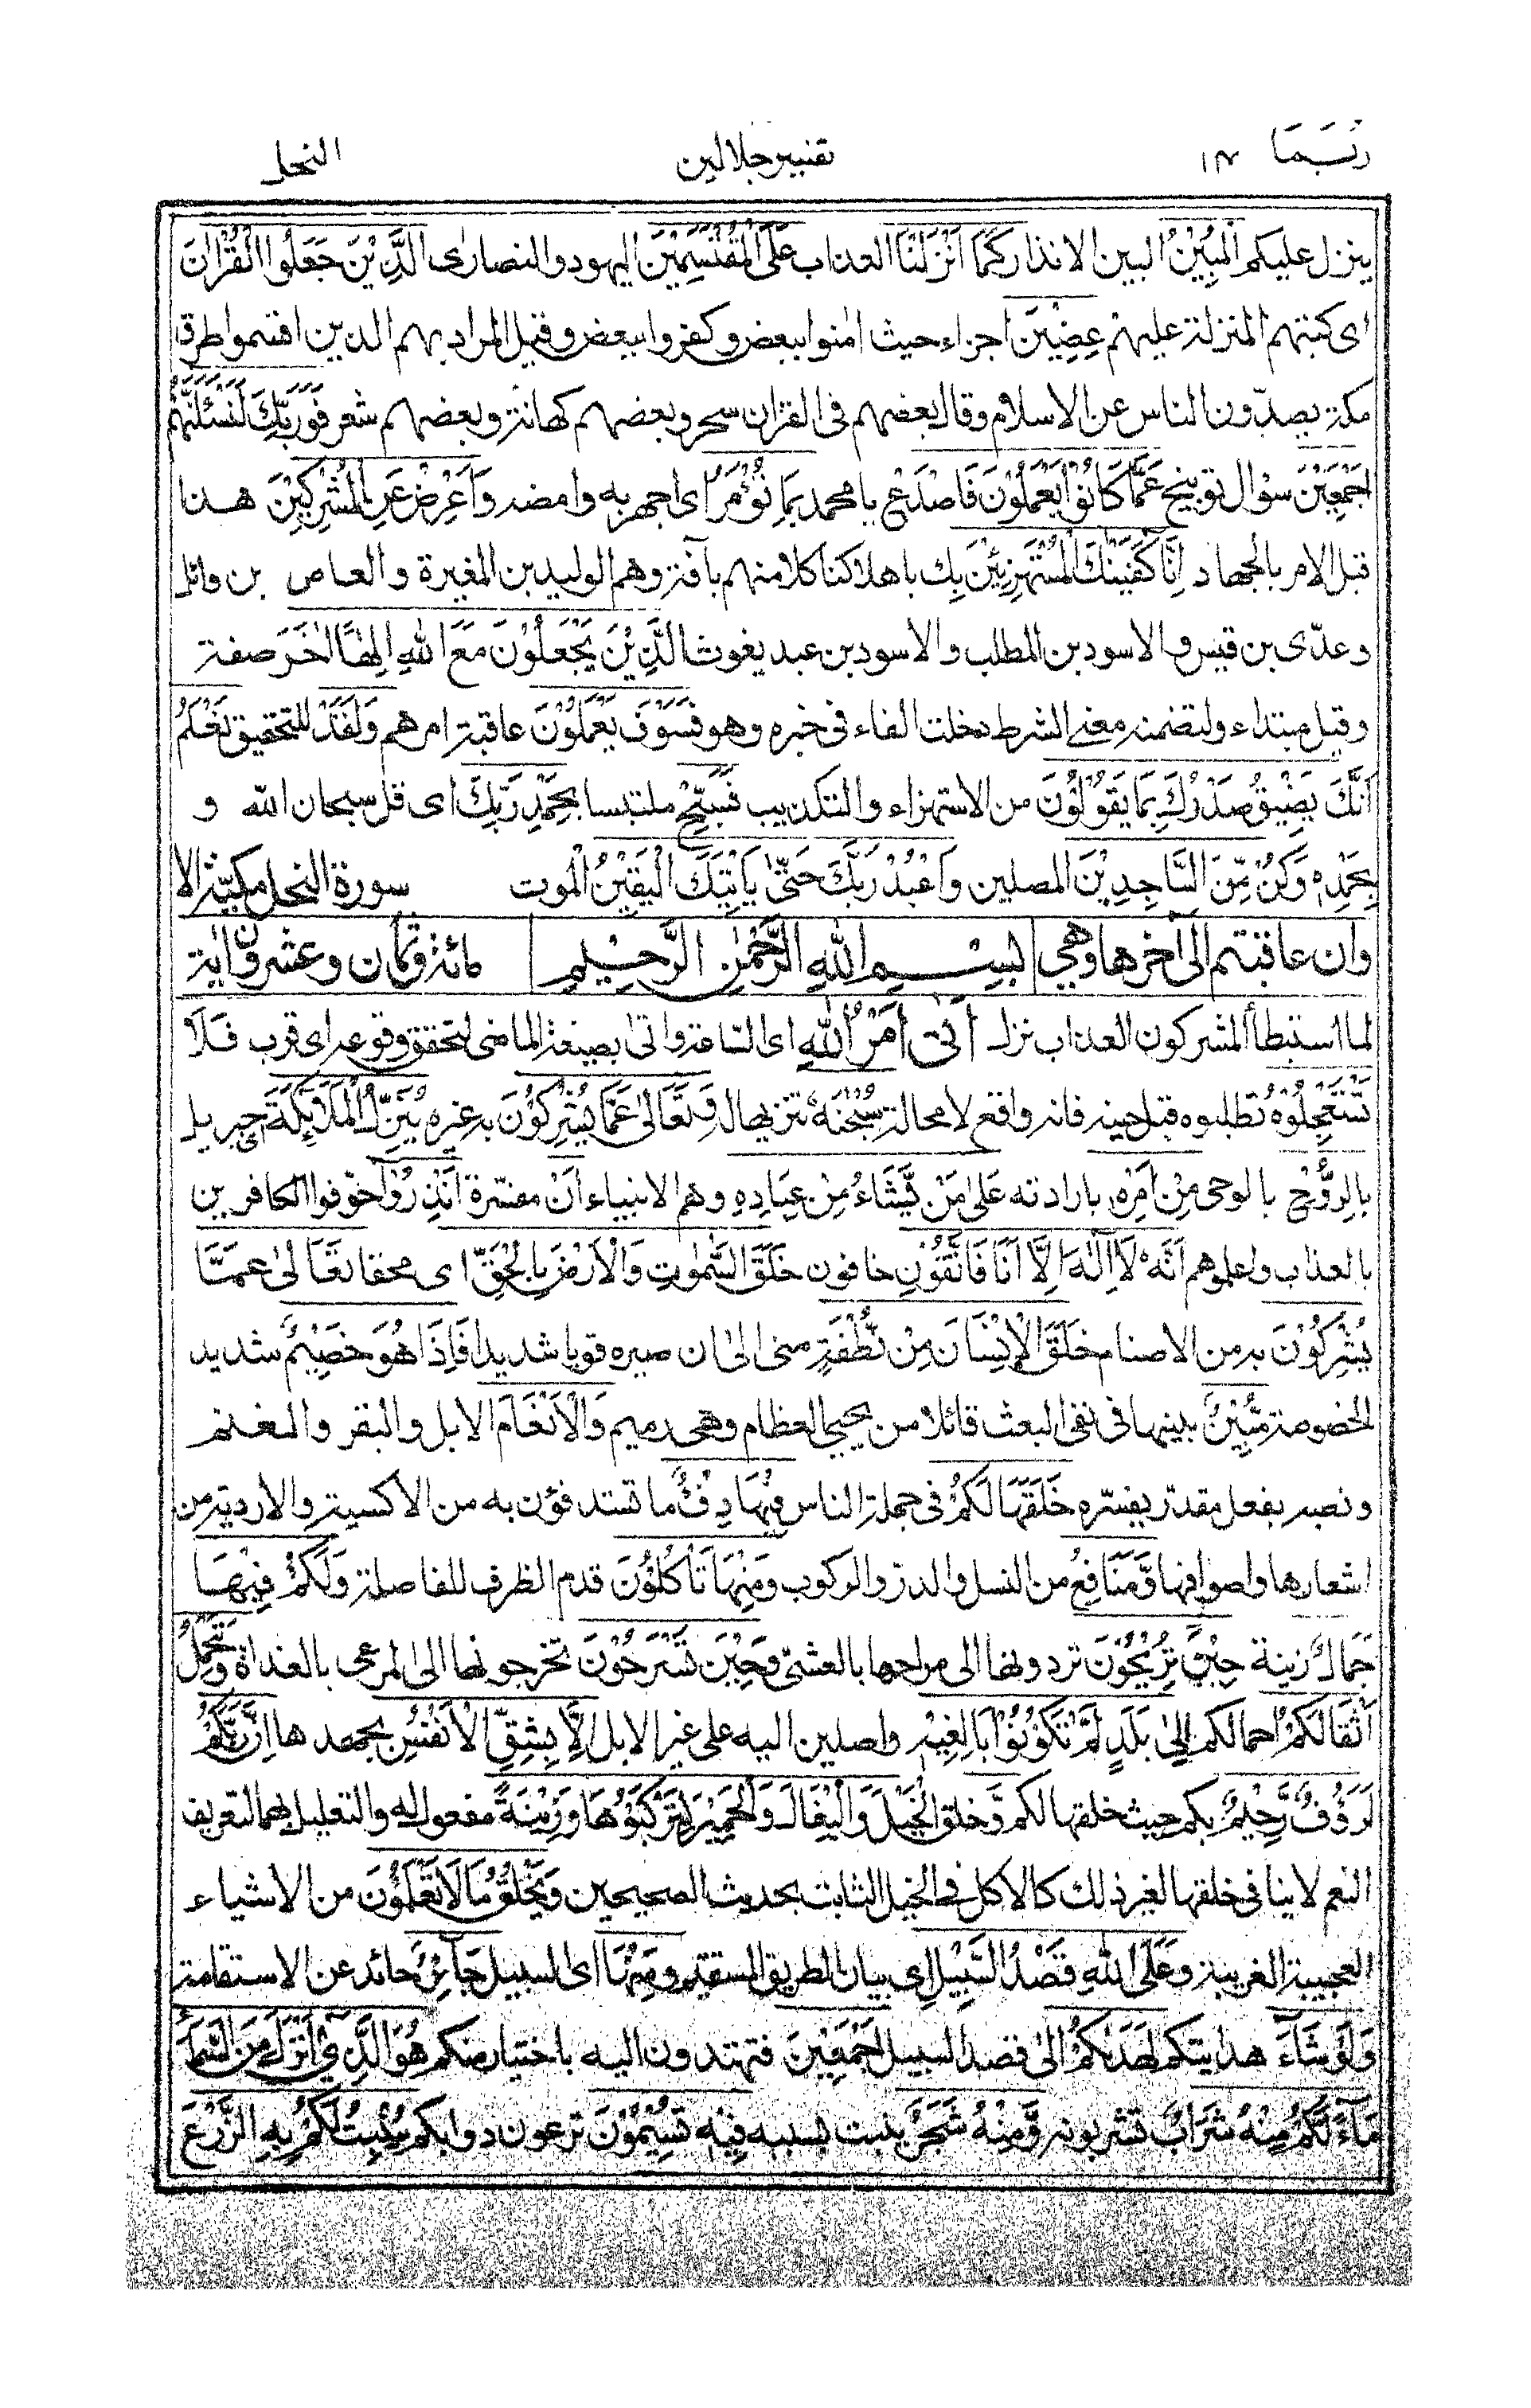 ربما ١٤ تفسير جلالين النحل
ينزل عليكم الْمُبِيْنُ البين الانذار كَمَا اَنْزَلْنَا العذاب عَلَى الْمُقْتَسِمِيْنَ اليهود والنصارى الَّذِيْنَ جَعَلُوا الْقُرْاٰنَ
اى كتبهم المنزلة عليهم عِضِيْنَ اجزاء حيث اٰمنوا ببعض و كفروا ببعض وقيل المراد بهم الذين اقتسموا طرق
مكة يصدّون الناس عن الاسلام وقال بعضهم فى القرٰان سحر وبعضهم كهانة وبعضهم شعر فَوَرَبِّكَ لَنَسْئَلَنَّهُمْ
اَجْمَعِيْنَ سؤال توبيخ عَمَّا كَانُوْا يَعْمَلُوْنَ فَاصْدَعْ يا محمد بِمَا تُؤْمَرُ اى اجهر به وامضه وَاَعْرِضْ عَنِ الْمُشْرِكِيْنَ هذا
قبل الامر بالجهاد اِنَّا كَفَيْنٰكَ الْمُسْتَهْزِئِيْنَ بك باهلاكنا كلا منهم بآفة وهم الوليد بن المغيرة والعاص بن وائل
وعدّى بن قيس والاسود بن المطلب والاسود بن عبد يغوث الَّذِيْنَ يَجْعَلُوْنَ مَعَ اللهِ اِلٰهًا اٰخَرَ صفة
وقيل مبتداء ولتضمنه معنى الشرط دخلت الفاء فى خبره وهو فَسَوْفَ يَعْمَلُوْنَ عاقبة امرهم وَلَقَدْ للتحقيق نَعْلَمُ
اَنَّكَ يَضِيْقُ صَدْرُكَ بِمَا يَقُوْلُوْنَ من الاستهزاء والتكذيب فَسَبِّحْ ملتبسا بِحَمْدِ رَبِّكَ اى قل سبحان الله و
بِحَمْدِهٖ وَكُنْ مِّنَ السَّاجِدِيْنَ المصلين وَاعْبُدْ رَبَّكَ حَتّٰى يَاْتِيَكَ الْيَقِيْنُ الموت سورة النحل مكيّة الا
وان عاقبتم الى اٰخرها وهى بِسْمِ اللهِ الرَّحْمٰنِ الرَّحِيْمِ مائة وثمان وعشرون اٰية
لما استبطأ المشركون العذاب نزل اَتٰى اَمْرُ اللهِ اى الساعة واتى بصيغة الماضى لتحقق وقوعه اى قرب فَلَا
تَسْتَعْجِلُوْهُ تطلبوه قبل حينه فانه واقع لا محالة سُبْحٰنَهٗ تنزيها له وَتَعَالٰى عَمَّا يُشْرِكُوْنَ به غيره يُنَزِّلُ الْمَلٰٓئِكَةَ جبريل
بِالرُّوْحِ بالوحى مِنْ اَمْرِهٖ بارادته عَلٰى مَنْ يَّشَاءُ مِنْ عِبَادِهٖ وهم الانبياء اَنْ مفسّرة اَنْذِرُوْا خوّفوا الكافرين
بالعذاب واعلموهم اَنَّهٗ لَا اِلٰهَ اِلَّا اَنَا فَاتَّقُوْنِ خافون خَلَقَ السَّمٰوٰتِ وَالْاَرْضَ بِالْحَقِّ اى محقا تَعَالٰى عَمَّا
يُشْرِكُوْنَ به من الاصنام خَلَقَ الْاِنْسَانَ مِنْ نُّطْفَةٍ منى الى ان صيره قويا شديدا فَاِذَا هُوَ خَصِيْمٌ شديد
الخصومة مُّبِيْنٌ بينها فى نفى البعث قائلا من يحيى العظام وهى رميم وَالْاَنْعَامَ الابل والبقر والغنم
ونصبه بفعل مقدّر يفسّره خَلَقَهَا لَكُمْ فى جملة الناس فِيْهَا دِفْءٌ ما تستدفؤن به من الاكسية والاردية من
اشعارها واصوافها وَّمَنَافِعُ من النسل والدر والركوب وَمِنْهَا تَاْكُلُوْنَ قدم الظرف للفاصلة وَلَكُمْ فِيْهَا
جَمَالٌ زينة حِيْنَ تُرِيْحُوْنَ تردونها الى مراحها بالعشىّ وَحِيْنَ تَسْرَحُوْنَ تخرجونها الى المرعى بالغداة وَتَحْمِلُ
اَثْقَالَكُمْ احمالكم اِلٰى بَلَدٍ لَّمْ تَكُوْنُوْا بَالِغِيْهِ واصلين اليه على غير الابل اِلَّا بِشِقِّ الْاَنْفُسِ بجهدها اِنَّ رَبَّكُمْ
لَرَءُوْفٌ رَّحِيْمٌ بكم حيث خلقها لكم وَّخلق الْخَيْلَ وَالْبِغَالَ وَالْحَمِيْرَ لِتَرْكَبُوْهَا وَزِيْنَةً مفعول له والتعليل بهما لتعريف
النعم لا ينافى خلقها لغير ذلك كالاكل فى الخيل الثابت بحديث الصحيحين وَيَخْلُقُ مَا لَا تَعْلَمُوْنَ من الاشياء
العجيبة الغريبة وَعَلَى اللهِ قَصْدُ السَّبِيْلِ اى بيان الطريق المستقيم وَمِنْهَا اى السبيل جَآئِرٌ حائد عن الاستقامة
وَلَوْ شَآءَ هدايتكم لَهَدٰىكُمْ الى قصد السبيل اَجْمَعِيْنَ فتهتدون اليه باختيار منكم هُوَ الَّذِيْ اَنْزَلَ مِنَ السَّمَآءِ
مَآءً لَّكُمْ مِنْهُ شَرَابٌ تشربونه وَّمِنْهُ شَجَرٌ ينبت بسببه فِيْهِ تُسِيْمُوْنَ ترعون دوابكم يُنْبِتُ لَكُمْ بِهِ الزَّرْعَ